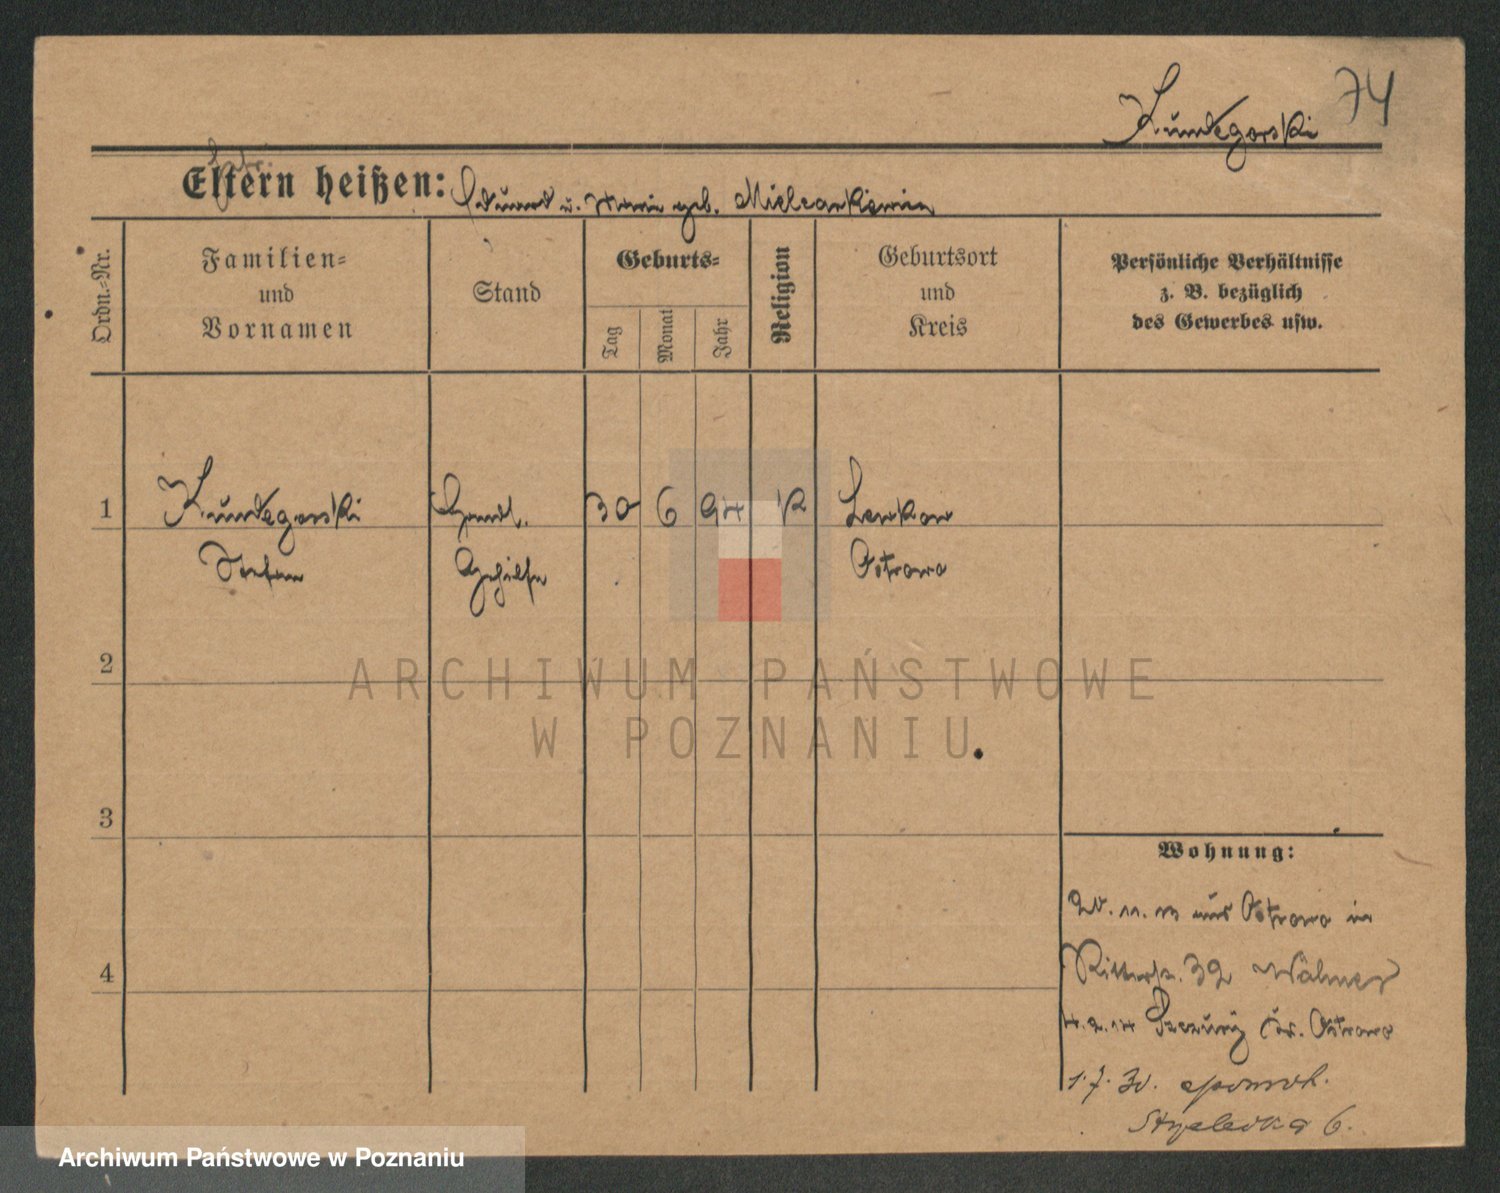 74
Kundegorski
Eltern heißen: Eduard u. Marie geb. Mielcarkiewicz
Ordn.-Nr.
Familien-
und
Vornamen
Stand
Geburts-
Tag
Monat
Jahr
Religion
Geburtsort
und
Kreis
Persönliche Verhältnisse
z. B. bezüglich
des Gewerbes usw.
1 Kundegorski Handl. 30 6 94 K Lenkow
Stefan Gehilfe Ostrowo
2
ARCHIWUM PAŃSTWOWE
W POZNANIU
3
Wohnung:
aus Ostrowo in
Ritterstr. 32
4
Kr. Ostrowo
1.7.30.
6.
Archiwum Państwowe w Poznaniu